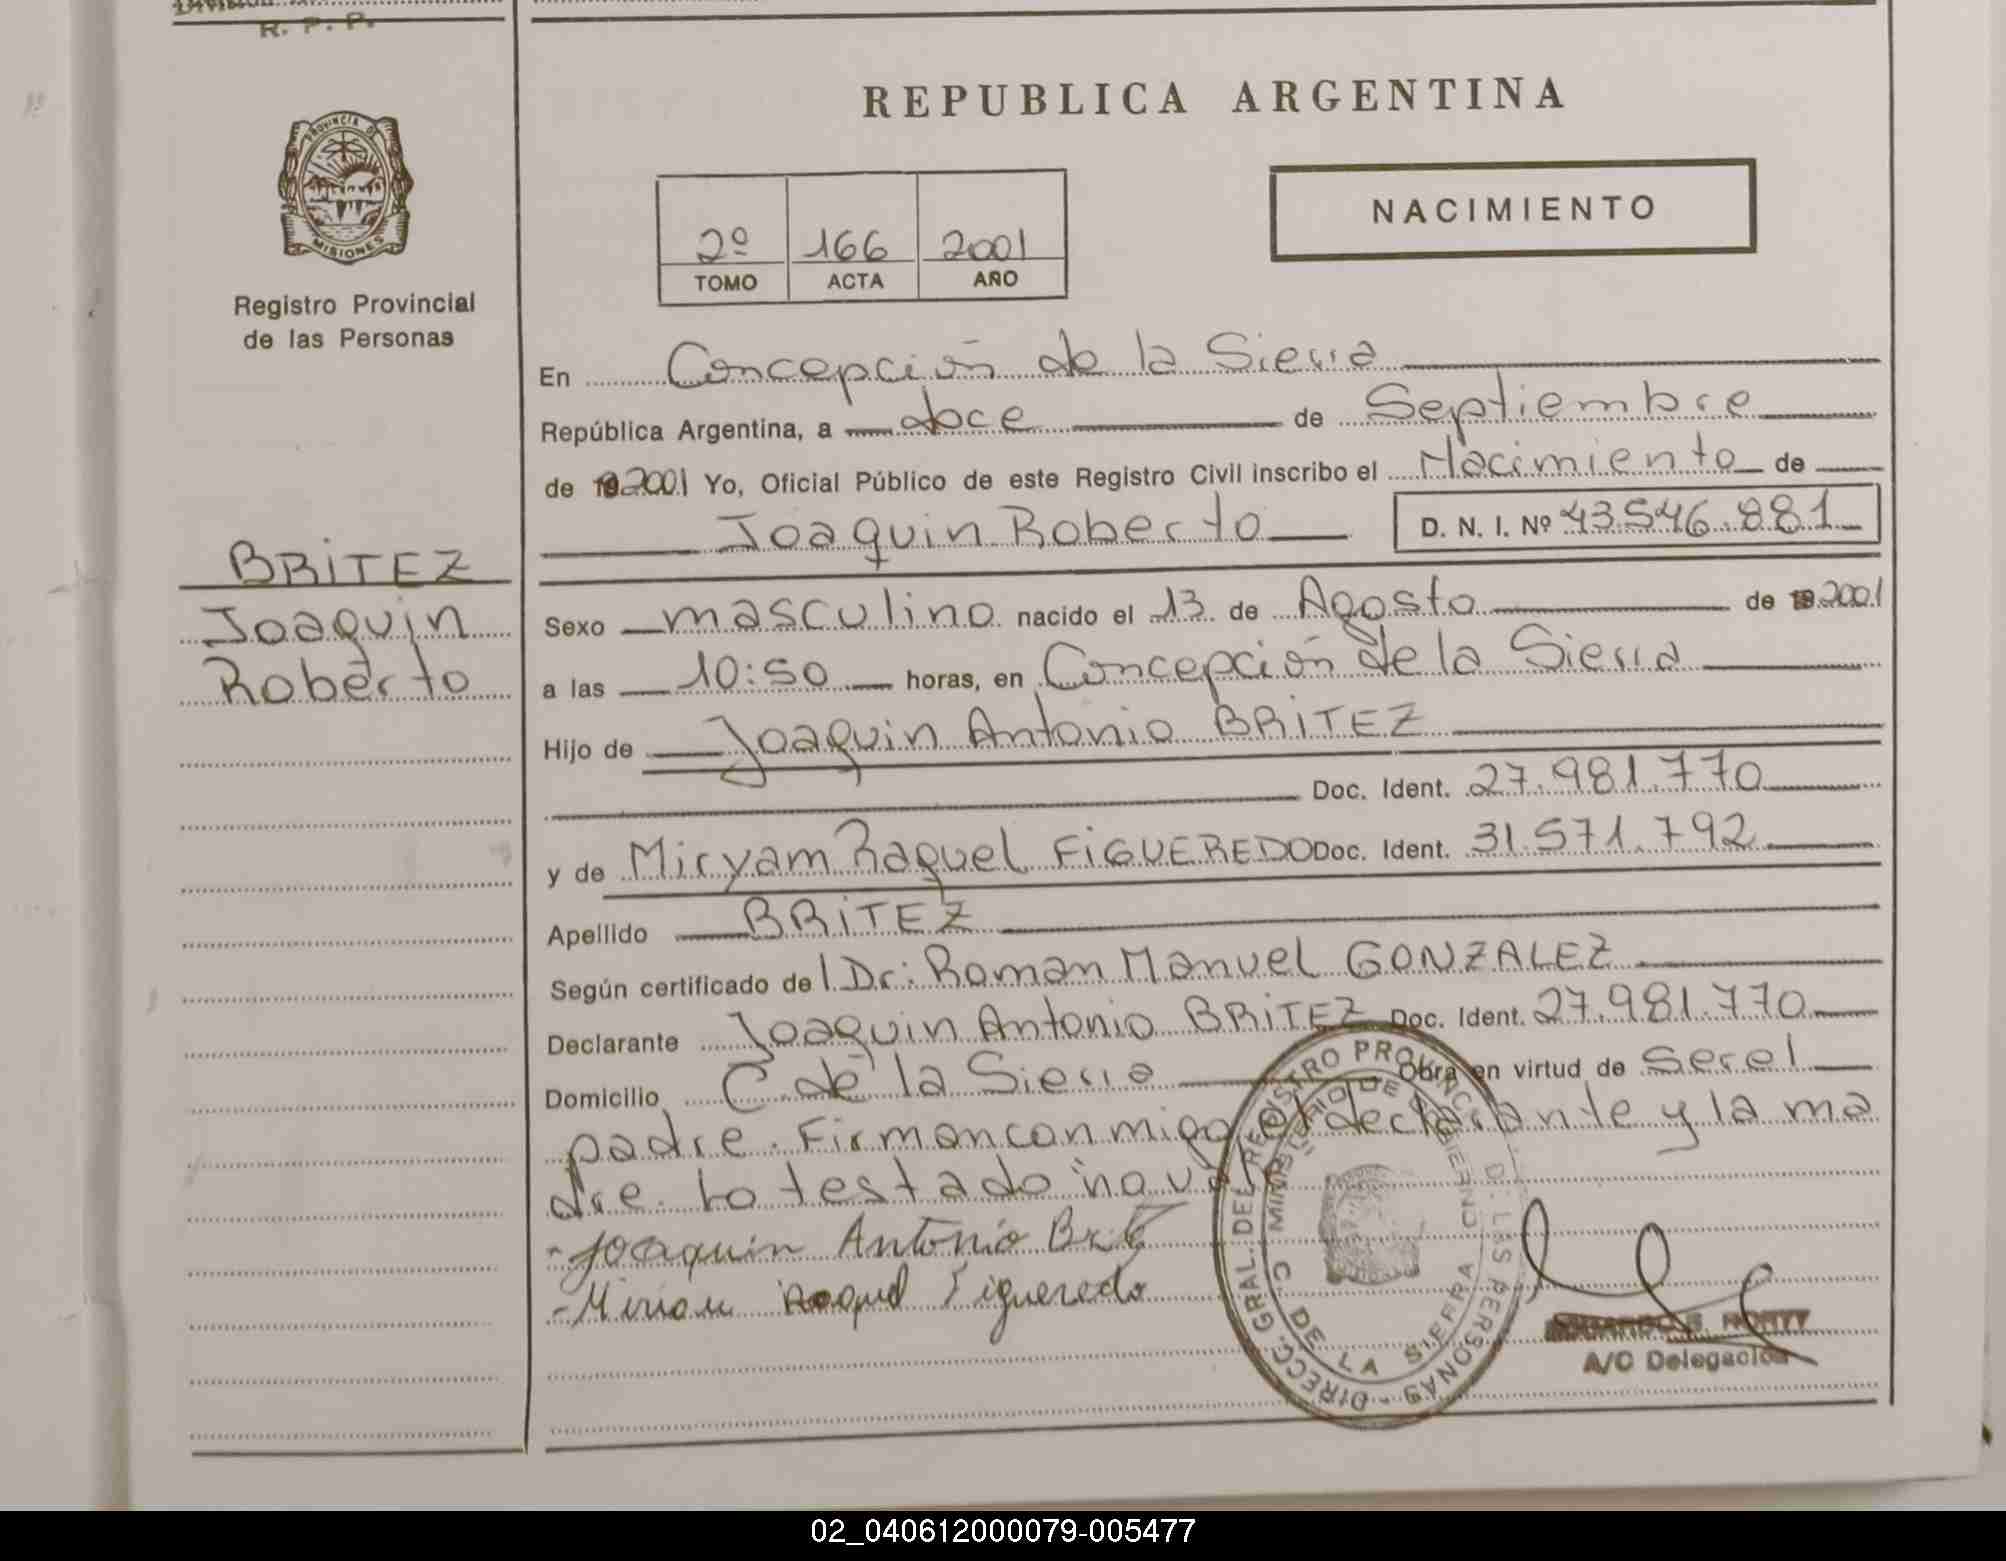 R. P. P.
REPUBLICA ARGENTINA
PROVINCIA DE
MISIONES
Registro Provincial
de las Personas
2º 166 2001
TOMO ACTA AÑO
NACIMIENTO
BRITEZ
Joaquin
Roberto
En Concepción de la Sierra
República Argentina, a doce de Septiembre
de 2001 Yo, Oficial Público de este Registro Civil inscribo el Nacimiento de
Joaquin Roberto D. N. I. Nº 43.546.881
Sexo masculino nacido el 13 de Agosto de 2001
a las 10:50 horas, en Concepción de la Sierra
Hijo de Joaquin Antonio BRITEZ
Doc. Ident. 27.981.770
y de Miryam Raquel FIGUEREDO Doc. Ident. 31.571.792
Apellido BRITEZ
Según certificado de l Dr: Roman Manuel GONZALEZ
Declarante Joaquin Antonio BRITEZ Doc. Ident. 27.981.770
Domicilio C. de la Sierra Obra en virtud de ser el
padre. Firman conmigo el declarante y la ma
dre. Lo testado no vale
- Joaquin Antonio
- Miriam Raquel Figueredo
DIRECC. GRAL. DEL REGISTRO PROVINC. D. LAS PERSONAS
MINISTERIO DE GOBIERNO
C. DE LA SIERRA
A/C Delegación
02_040612000079-005477